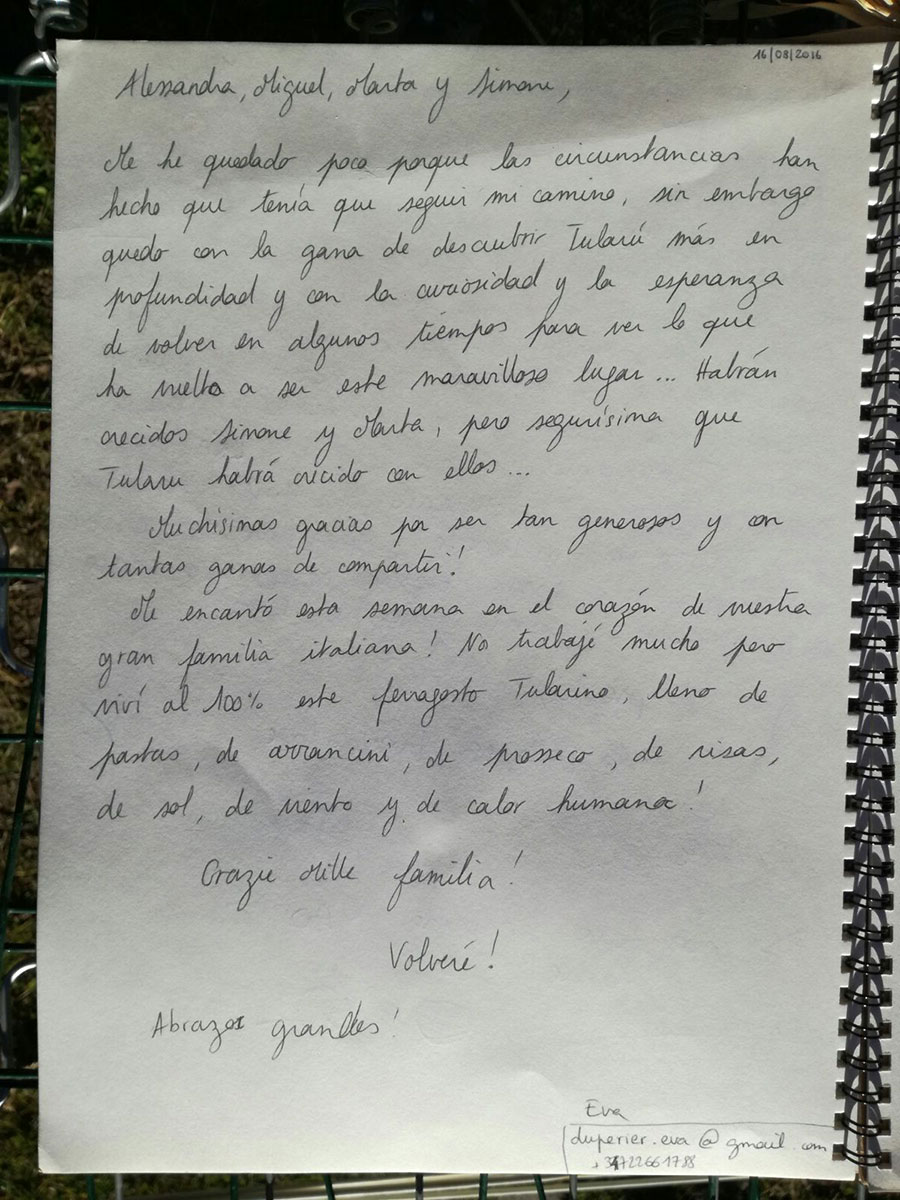 16/08/2016
Alessandra, Miguel, Marta y Simone,
Me he quedado poco porque las circunstancias han
hecho que tenía que seguir mi camino, sin embargo
quedo con la gana de descubrir Tularù más en
profundidad y con la curiosidad y la esperanza
de volver en algunos tiempos para ver lo que
ha vuelto a ser este maravilloso lugar... Habrán
crecidos Simone y Marta, pero segurísima que
Tularu habrá crecido con ellos...
Muchísimas gracias por ser tan generosos y con
tantas ganas de compartir!
Me encantó esta semana en el corazón de vuestra
gran familia italiana! No trabajé mucho pero
viví al 100% este ferragosto Tularino, lleno de
pastas, de arrancini, de prosseco, de risas,
de sol, de viento y de calor humana!
Grazie Mille familia!
Volveré!
Abrazos grandes!
Eva
duperier.eva@gmail.com